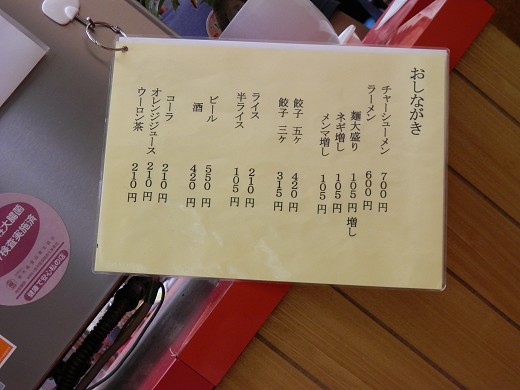 おしながき
チャーシューメン 700円
ラーメン 600円
麺大盛り 105円増し
ネギ増し 105円
メンマ増し 105円
餃子 五ヶ 420円
餃子 三ヶ 315円
ライス 210円
半ライス 105円
ビール 550円
酒 420円
コーラ 210円
オレンジジュース 210円
ウーロン茶 210円
大腸菌
検査実施済